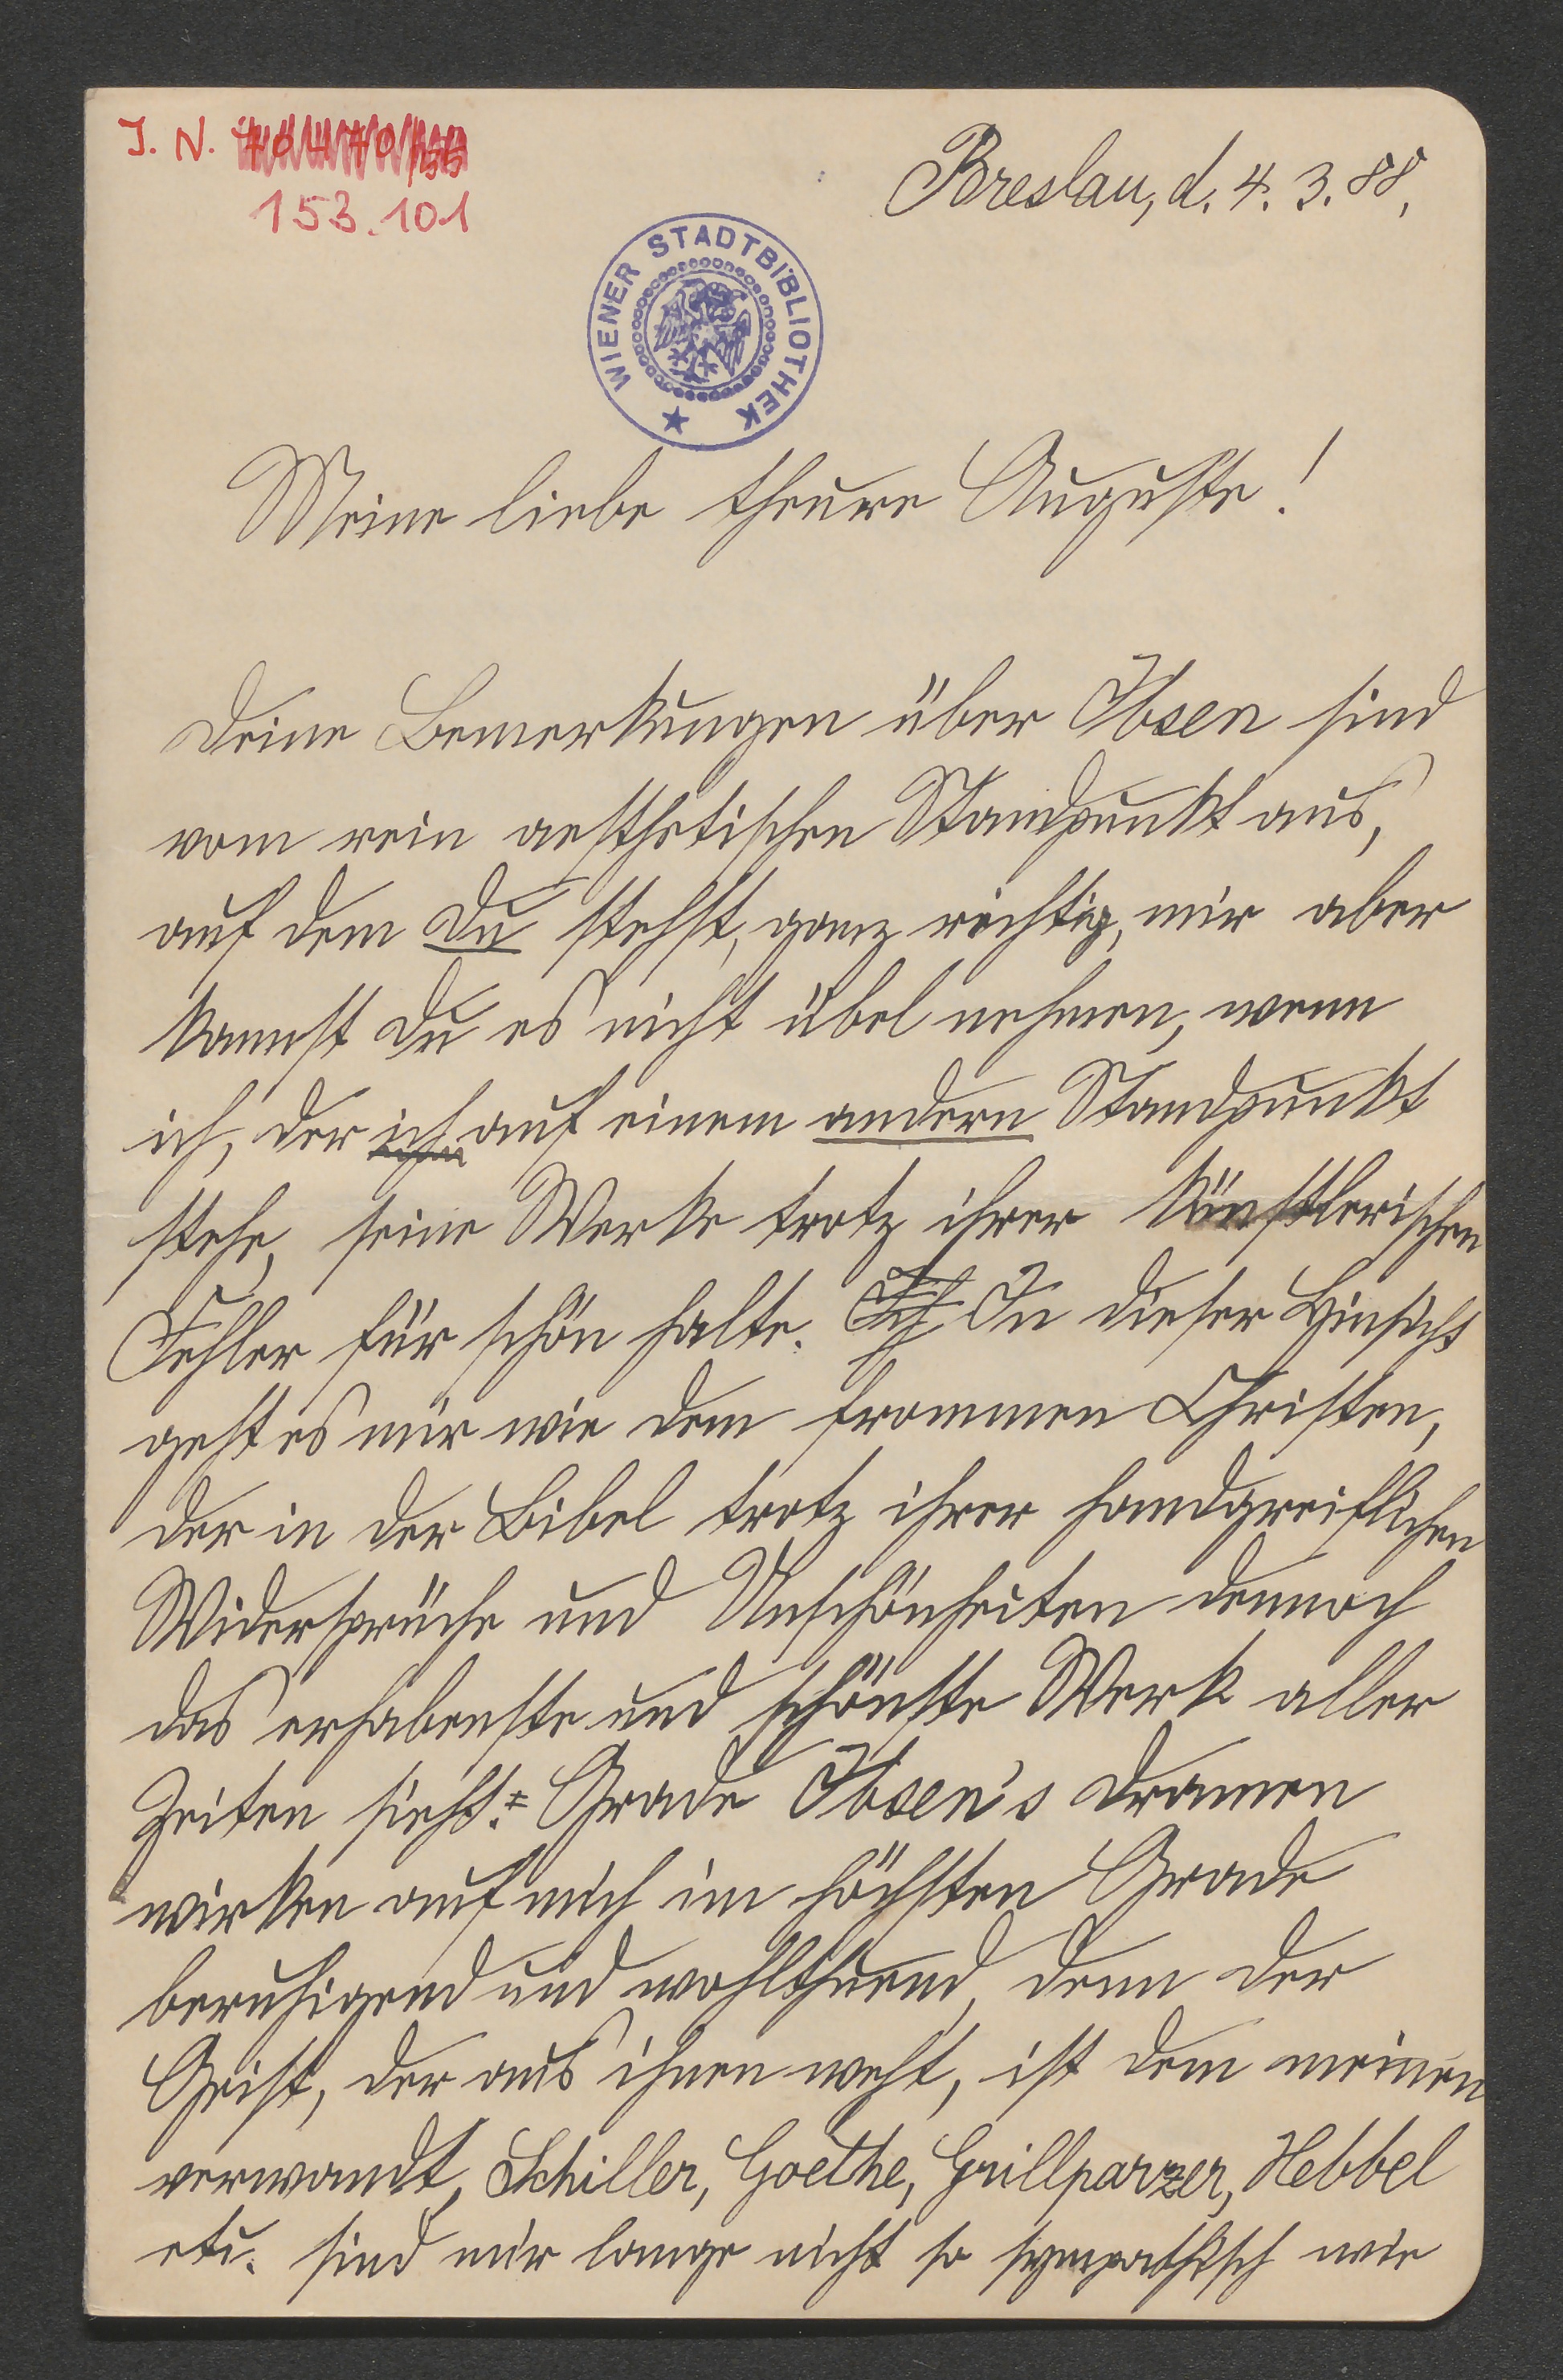 J. N.
153.101
Breslau, d. 4. 3. 88.
WIENER STADTBIBLIOTHEK
Meine liebe theure Auguste!
Deine Bemerkungen über Ibsen sind
vom rein aesthetischen Standpunkt aus,
auf dem Du stehst, ganz richtig, mir aber
kannst Du es nicht übel nehmen, wenn
ich, der ich auf einem andern Standpunkt
stehe, seine Werke trotz ihrer künstlerischen
Fehler für schön halte. In dieser Hinsicht
geht es mir wie dem frommen Christen,
der in der Bibel trotz ihrer handgreiflichen
Widersprüche und Unschönheiten dennoch
das erhabenste und schönste Werk aller
Zeiten sieht. Grade Ibsen's Dramen
wirken auf mich im höchsten Grade
beruhigend und wohlthuend, denn der
Geist, der aus ihnen weht, ist dem meinen
verwandt, Schiller, Goethe, Grillparzer, Hebbel
etc. sind mir lange nicht so sympathisch wie